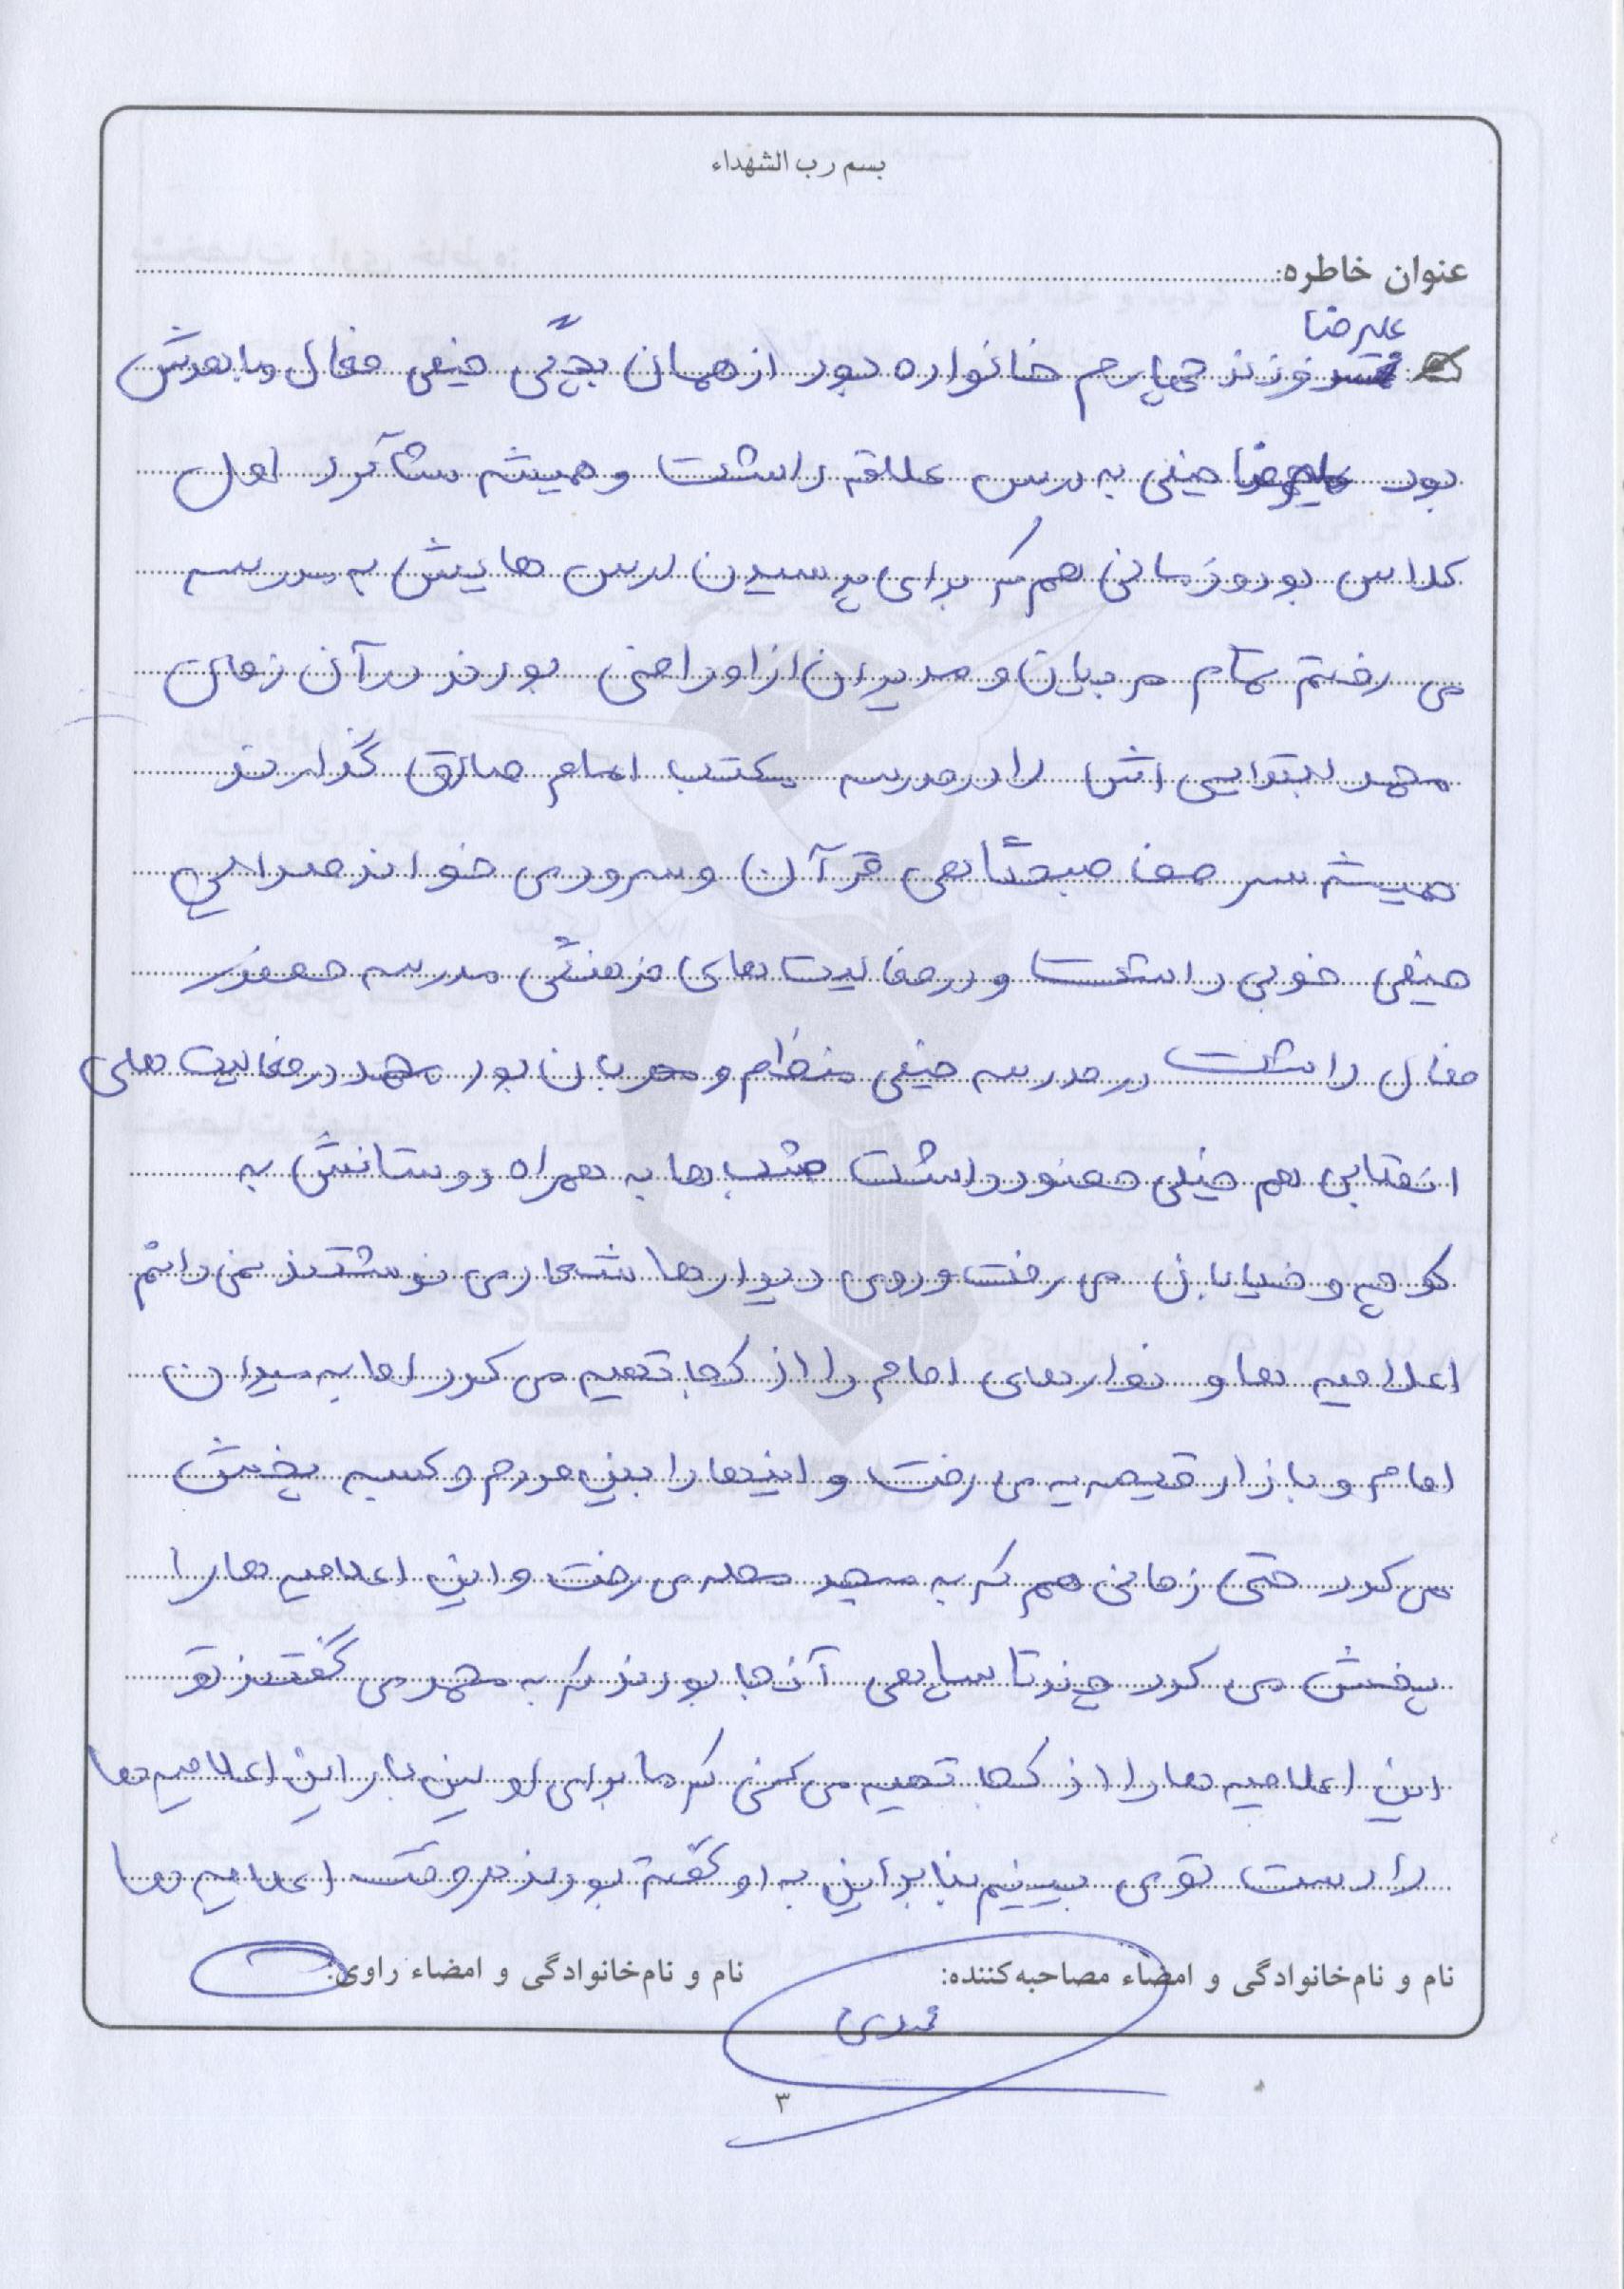 بسم رب الشهداء
عنوان خاطره:
علیرضا
فرزند چهارم خانواده بود از همان بچگی خیلی فعال و باهوش
بود علیرضا خیلی به درس علاقه داشت و همیشه شاگرد اول
کلاس بود و زمانی هم که برای پرسیدن درس هایش به مدرسه
می رفتم تمام مربیان و مدیران از او راضی بودند در آن زمان
مهد ابتدایی اش را در مدرسه مکتب امام صادق گذارند
همیشه سر صف صبحگاهی قرآن و سرود می خواند صدا
خیلی خوبی داشت و در فعالیت های فرهنگی مدرسه حضور
فعال داشت در مدرسه خیلی منظم و مهربان بود در فعالیت های
انقلابی هم خیلی حضور داشت شب ها به همراه دوستانش به
کوچه و خیابان می رفت و روی دیوارها شعار می نوشتند نمی دانم
اعلامیه ها و نوارهای امام را از کجا تهیه می کرد اما به میدان
امام و بازار قیصریه می رفت و اینها را بین مردم و کسبه پخش
می کرد حتی زمانی هم که به مسجد محله می رفت و این اعلامیه ها را
پخش می کرد چند تا سپاهی آن جا بودند که به می گفتند تو
این اعلامیه ها را از کجا تهیه می کنی که ما برای اولین بار این اعلامیه ها
را دست تو می بینیم بنابراین به او گفته بودند هر وقت اعلامیه ها
نام و نام‌خانوادگی و امضاء مصاحبه‌کننده:
نام و نام‌خانوادگی و امضاء راوی:
۳